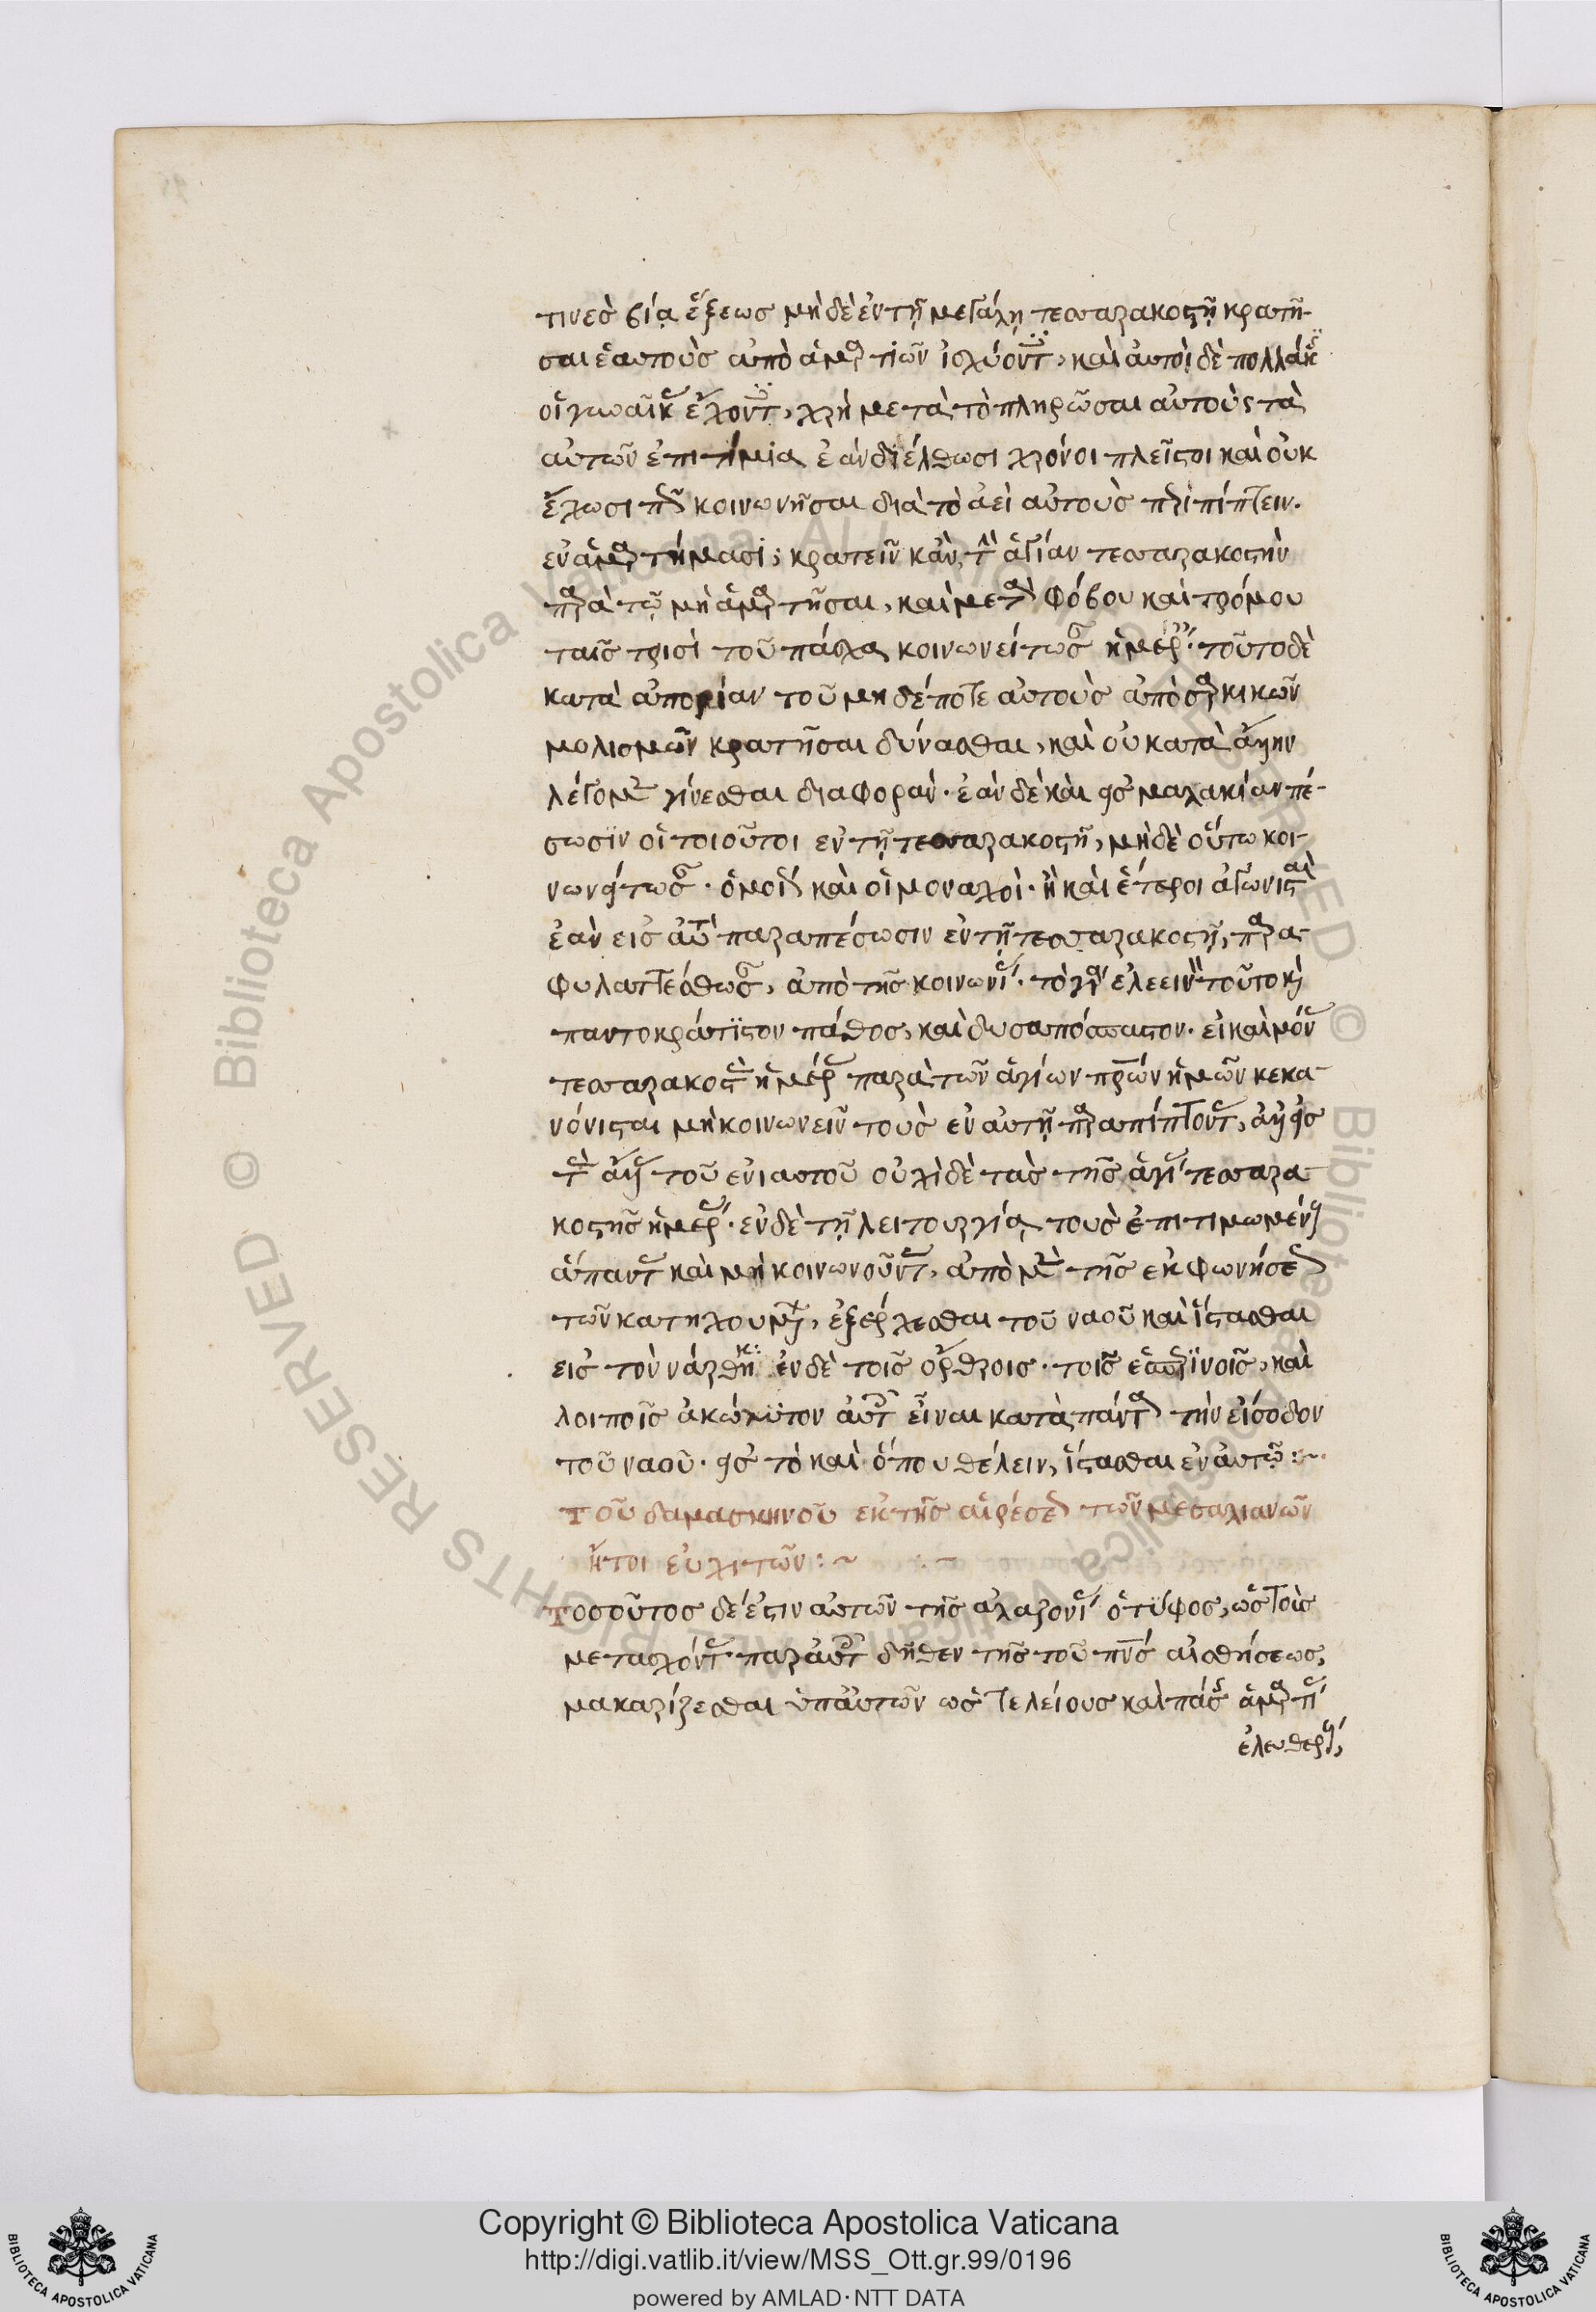 τινὲς βίᾳ ἕξεως μὴ δὲ ἐν τῇ μεγάλῃ τεσσαρακοστῇ κρατῆ-
σαι ἑαυτοὺς ἀπὸ ἁμαρτιῶν ἰσχύοντ, καὶ αὐτοὶ δὲ πολλάκ
οἱ γυναῖκ ἔχοντ, χρὴ μετὰ τὸ πληρῶσαι αὐτοὺς τὰ
αὐτῶν ἐπιτίμια ἐὰν διέλθωσι χρόνοι πλεῖστοι καὶ οὐκ
ἔχωσι κοινωνῆσαι διὰ τὸ ἀεὶ αὐτοὺς περιπίπτειν.
ἐν ἁμαρτήμασι; κρατεῖν κἂν τὴν ἁγίαν τεσσαρακοστὴν
παρὰ τῷ μὴ ἁμαρτῆσαι, καὶ μετὰ φόβου καὶ τρόμου
ταῖς τρισὶ τοῦ πάσχα κοινωνείτωσαν ἡμέρ. τοῦτο δὲ
κατὰ ἀπορίαν τοῦ μηδέποτε αὐτοὺς ἀπὸ σαρκικῶν
μολισμῶν κρατῆσαι δύνασθαι, καὶ οὐ κατὰ ἄλλην
λέγομεν γίνεσθαι διαφοράν. ἐὰν δὲ καὶ εἰς μαλακίαν πέ-
σωσιν οἱ τοιοῦτοι ἐν τῇ τεσσαρακοστῇ, μὴ δὲ οὕτω κοι-
νωνείτωσαν. ὁμοίως καὶ οἱ μοναχοὶ. ἢ καὶ ἕτεροι ἀγωνισταὶ
ἐὰν εἰς αὐτὸ παραπέσωσιν ἐν τῇ τεσσαρακοστῇ, παρα-
φυλαττέσθωσαν, ἀπὸ τῆς κοινωνί. τὸ γὰρ ἐλεεινὸν τοῦτο καὶ
παντοκράτιστον πάθος, καὶ δυσαπόσπαστον. εἰ καὶ μόν
τεσσαρακοστ ἡμέρ παρὰ τῶν ἁγίων πρων ἡμῶν κεκα-
νόνισται μὴ κοινωνεῖν τοὺς ἐν αὐτῇ παραπίπτοντ, ἀλλ εἰς
τ ἄλλ τοῦ ἐνιαυτοῦ οὐχὶ δὲ τὰς τῆς ἁγί τεσσαρα-
κοστῆς ἡμέρ. ἐν δὲ τῇ λειτουργίᾳ τοὺς ἐπιτιμωμέν
ἅπαντ καὶ μὴ κοινωνοῦντ, ἀπὸ μὲν τῆς ἐκφωνήσε
τῶν κατηχουμ, ἐξέρχεσθαι τοῦ ναοῦ καὶ ἵστασθαι
εἰς τὸν νάρθηκ: ἐν δὲ τοῖς ὄρθροις. τοῖς ἑσπερϊνοῖς, καὶ
λοιποῖς ἀκώλυτον αὐτ εἶναι κατὰ πάντα τὴν εἴσοδον
τοῦ ναοῦ. εἰς τὸ καὶ ὅπου θέλειν, ἵστασθαι ἐν αὐτῷ :~
Τοῦ δαμασκηνοῦ ἐκ τῆς αἱρέσε τῶν μεσαλιανῶν
ἤτοι εὐχιτῶν :~
Τοσοῦτος δέ ἐστιν αὐτῶν τῆς ἀλαζονί ὁ τύφος, ὡς τοὺς
μετασχόντ παρ αὐτ δῆθεν τῆς τοῦ πνς αἰσθήσεως,
μακαρίζεσθαι ὑπ αὐτῶν ὡς τελείους καὶ πάσ ἁμαρτί
ἐλευθέρ,
Copyright © Biblioteca Apostolica Vaticana
http://digi.vatlib.it/view/MSS_Ott.gr.99/0196
powered by AMLAD · NTT DATA